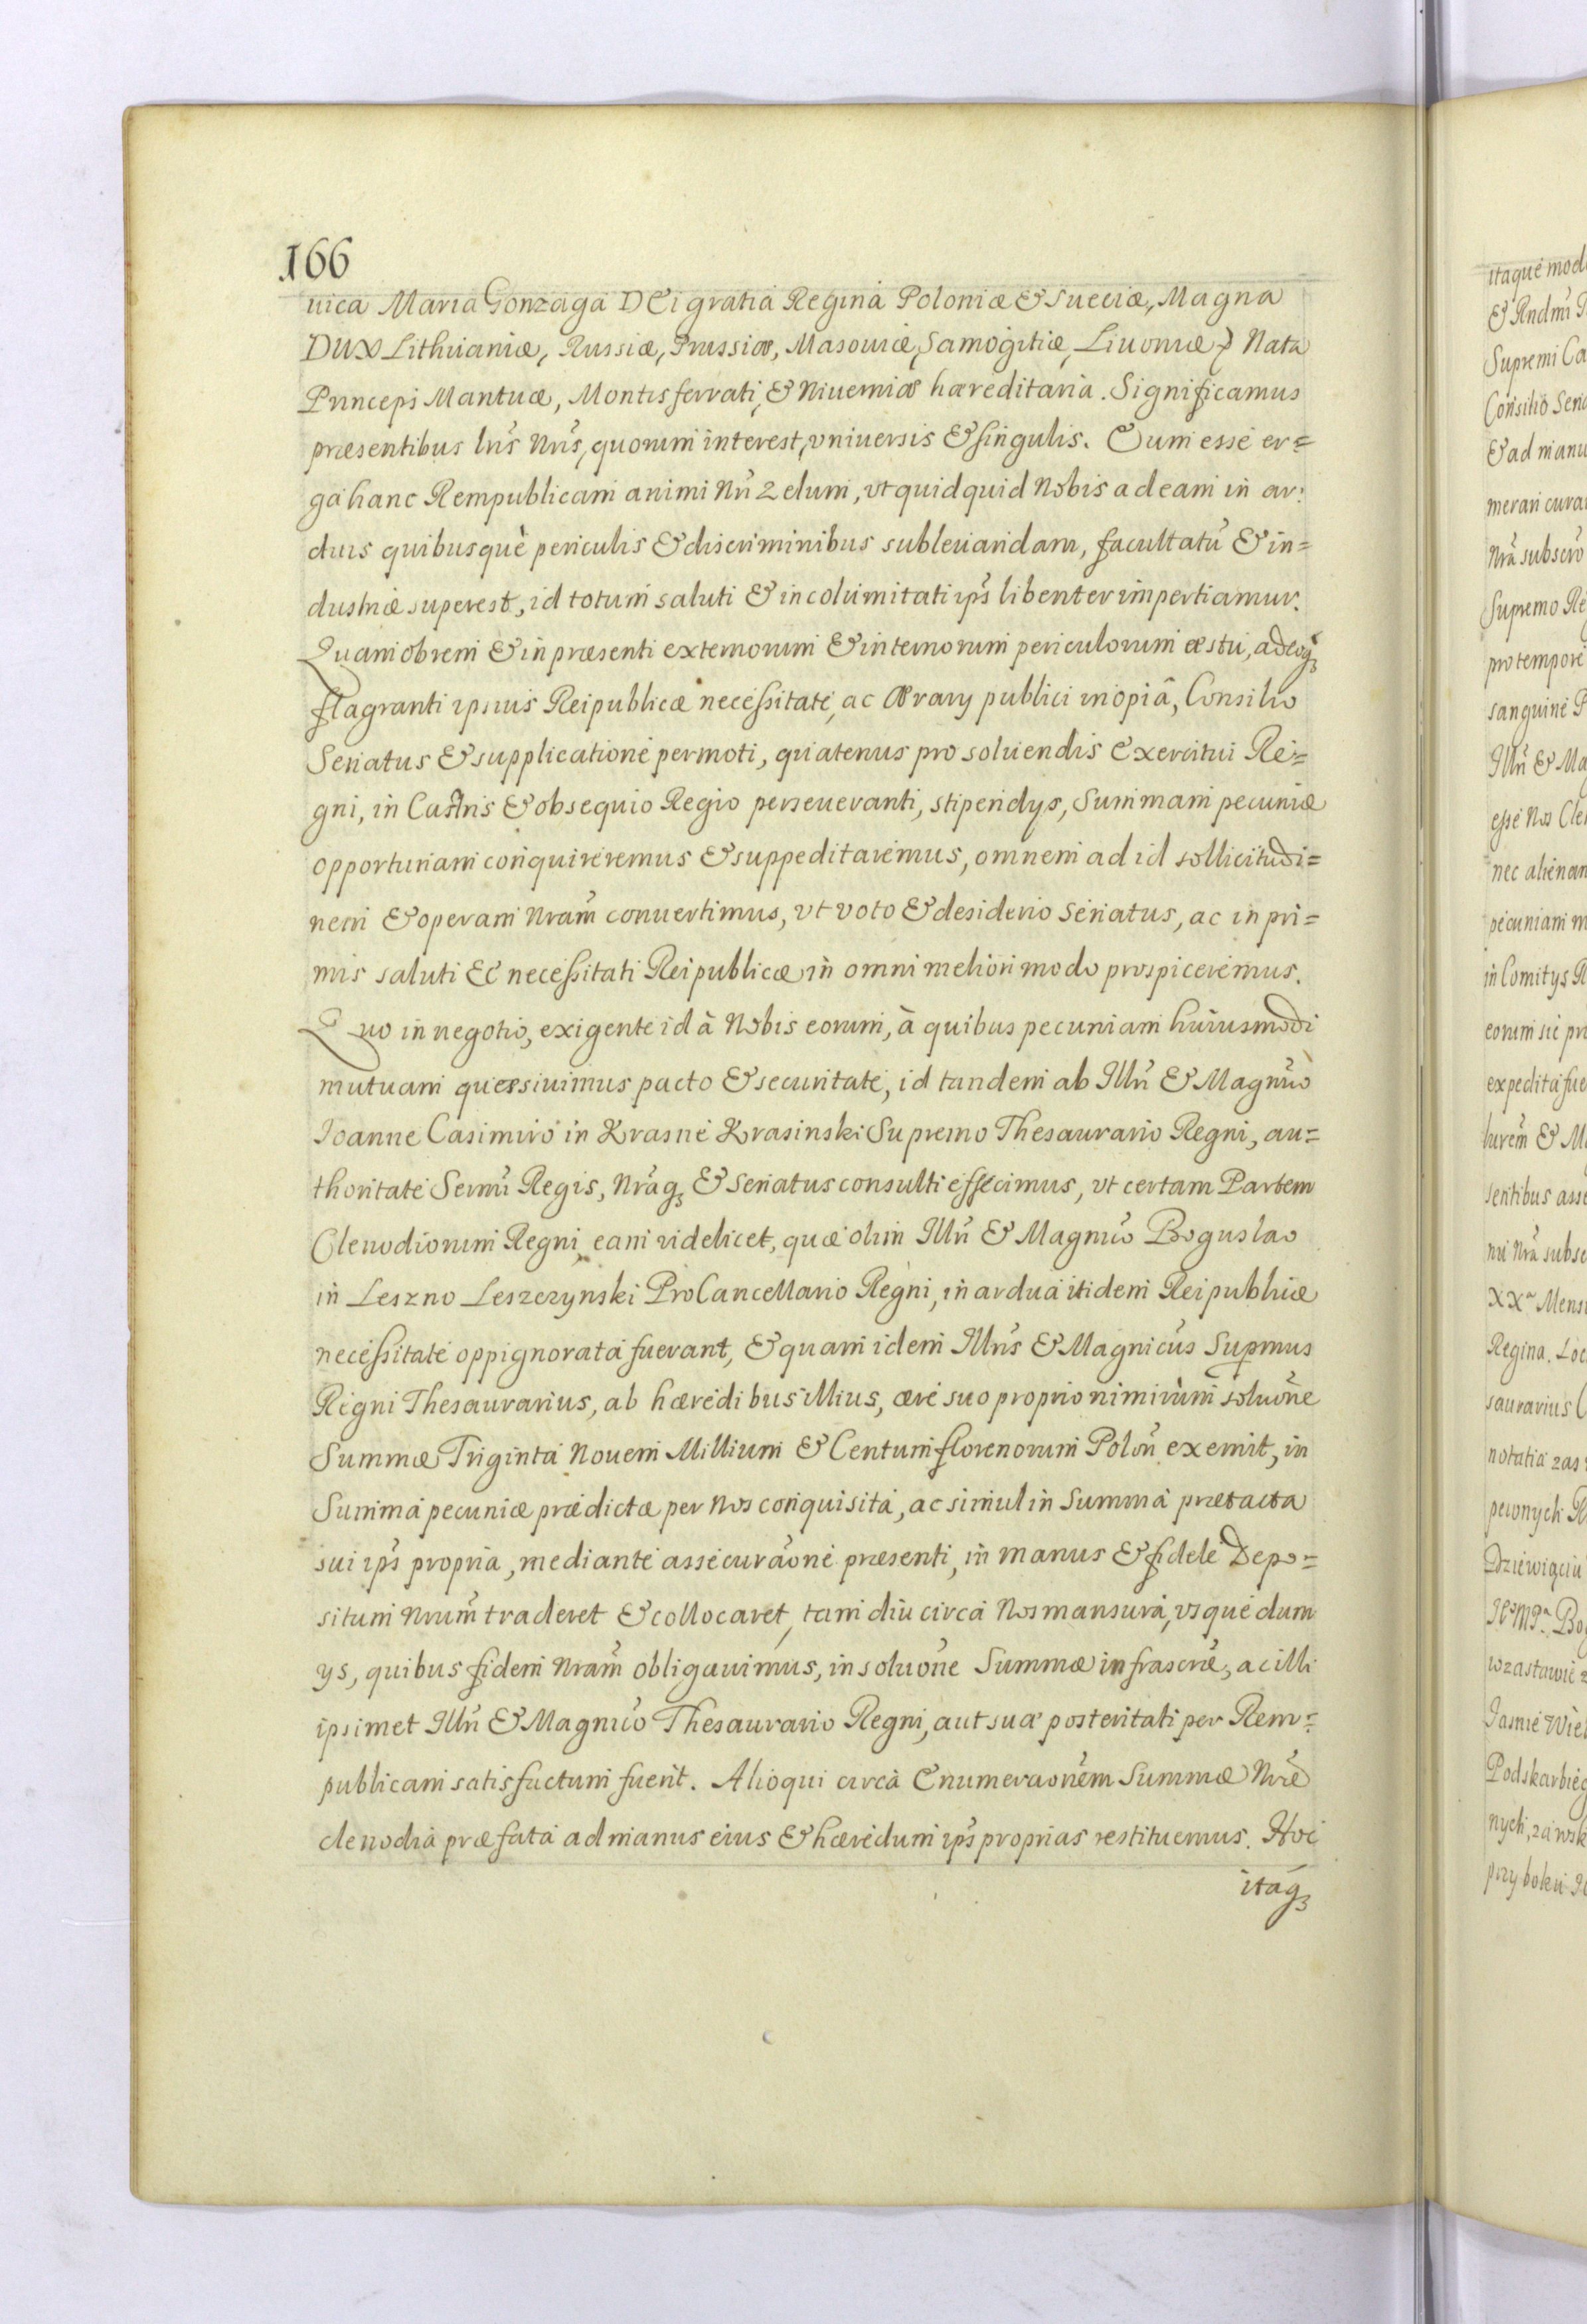 166
uica Maria Gonzaga DEi gratia Regina Poloniæ & Sueciæ, Magna
DUX Lithuaniæ, Russiæ, Prussiæ, Masouiæ, Samogitiæ, Liuoniæ, Nata
Princeps Mantuæ, Montisferrati, & Niuerniæ hæreditaria. Significamus
præsentibus lrĩs Nrĩs, quorum interest, vniuersis & singulis. Eum esse er=
ga hanc Rempublicam animi Nrĩ Zelum, vt quidquid Nobis ad eam in ar=
duis quibusquè periculis & discriminibus subleuandam, facultatũ & in=
dustriæ superest, id totum saluti & incolumitati ips̃ libenter impertiamur.
Quamobrem & in præsenti externorum & internorum periculorum æstu, adeoq;
flagranti ipsius Reipublicæ necessitate, ac Ærary publici inopiâ, Consilio
Senatus & supplicatione permoti, quatenus pro soluendis Exercitui Re=
gni, in Castris & obsequio Regio perseueranti, stipendys, Summam pecuniæ
opportunam conquireremus & suppeditaremus, omnem ad id sollicitudi=
nem & operam Nram̃ conuertimus, vt voto & desiderio Senatus, ac in pri=
mis saluti Et necessitati Reipublicæ in omni meliori modo prospiceremus.
Quo in negotio, exigente id à Nobis eorum, à quibus pecuniam huiusmodi
mutuam quæsiuimus pacto & securitate, id tandem ab Illrĩ & Magnĩco
Joanne Casimiro in Krasne Krasinski Supremo Thesaurario Regni, au=
thoritate Sermĩ Regis, Nrãq; & Senatus consulti effecimus, vt certam Partem
Clenodiorum Regni, eam videlicet, quæ olim Illrĩ & Magnĩco Boguslao
in Leszno Leszczynski ProCancellario Regni, in ardua itidem Reipublicæ
necessitate oppignorata fuerant, & quam idem Illrĩs & Magnicũs Suprm̃us
Regni Thesaurarius, ab hæredibus illius, ære suo proprio nimirum soluõne
Summæ Triginta Nouem Millium & Centum florenorum Polõn exemit, in
Summa pecuniæ prædictæ per Nos conquisita, ac simul in Summa prætacta
sui ips̃ propria, mediante assecuraõne præsenti, in manus & fidele Depo=
situm Nrum̃ traderet & collocaret, tam diu circa Nos mansura, vsque dum
ys, quibus fidem Nram̃ obligauimus, in soluõne Summæ infrascræ̃, ac illi
ipsimet Illrĩ & Magnĩco Thesaurario Regni, aut suæ posteritati per Rem=
publicam satisfactum fuerit. Alioqui circa Enumeraonẽm Summæ Nræ̃
clenodia præfata ad manus eius & hæredum ips̃ proprias restituemus. Hoc
itáq;
itaque mod
Supremi Ca
Consilio Sena
& ad manu
merari cura
Supremo Re
pro tempore
sanguine P
esse Nos Cle
nec alienan
pecuniam m
in Comitys R
eorum sic pr
expedita fue
sentibus asse
Regina. Loc
saurarius C
notatia zas
pewnych R
Dziewiąciu
wzastawie z
Jasnie Wiel
Podskarbieg
przy boku